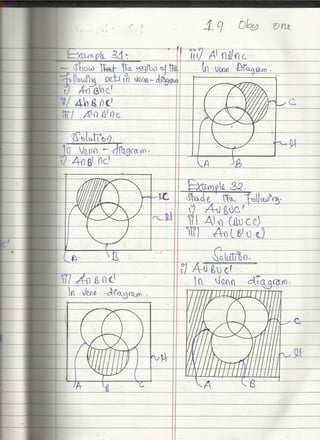 19 Oby one
Example 31:
- Show that the region of the
following sets in venn-diagram
i) A∩B∩C'
ii) A∩B∩C'
iii) A∩B'∩C
Solution
In Venn - diagram.
i) A∩B'∩C'
C
μ
A
B
ii) A∩B∩C'
In venn diagram.
μ
A
B
C
iii) A'∩B'∩C
In venn Diagram.
C
μ
A
B
Example 32.
Shade the following.
i) A∪B∪C'
ii) A'∩(B∪C)
iii) A∩(B'∪C)
Solution.
i) A∪B∪C'
In venn diagram.
C
μ
A
B